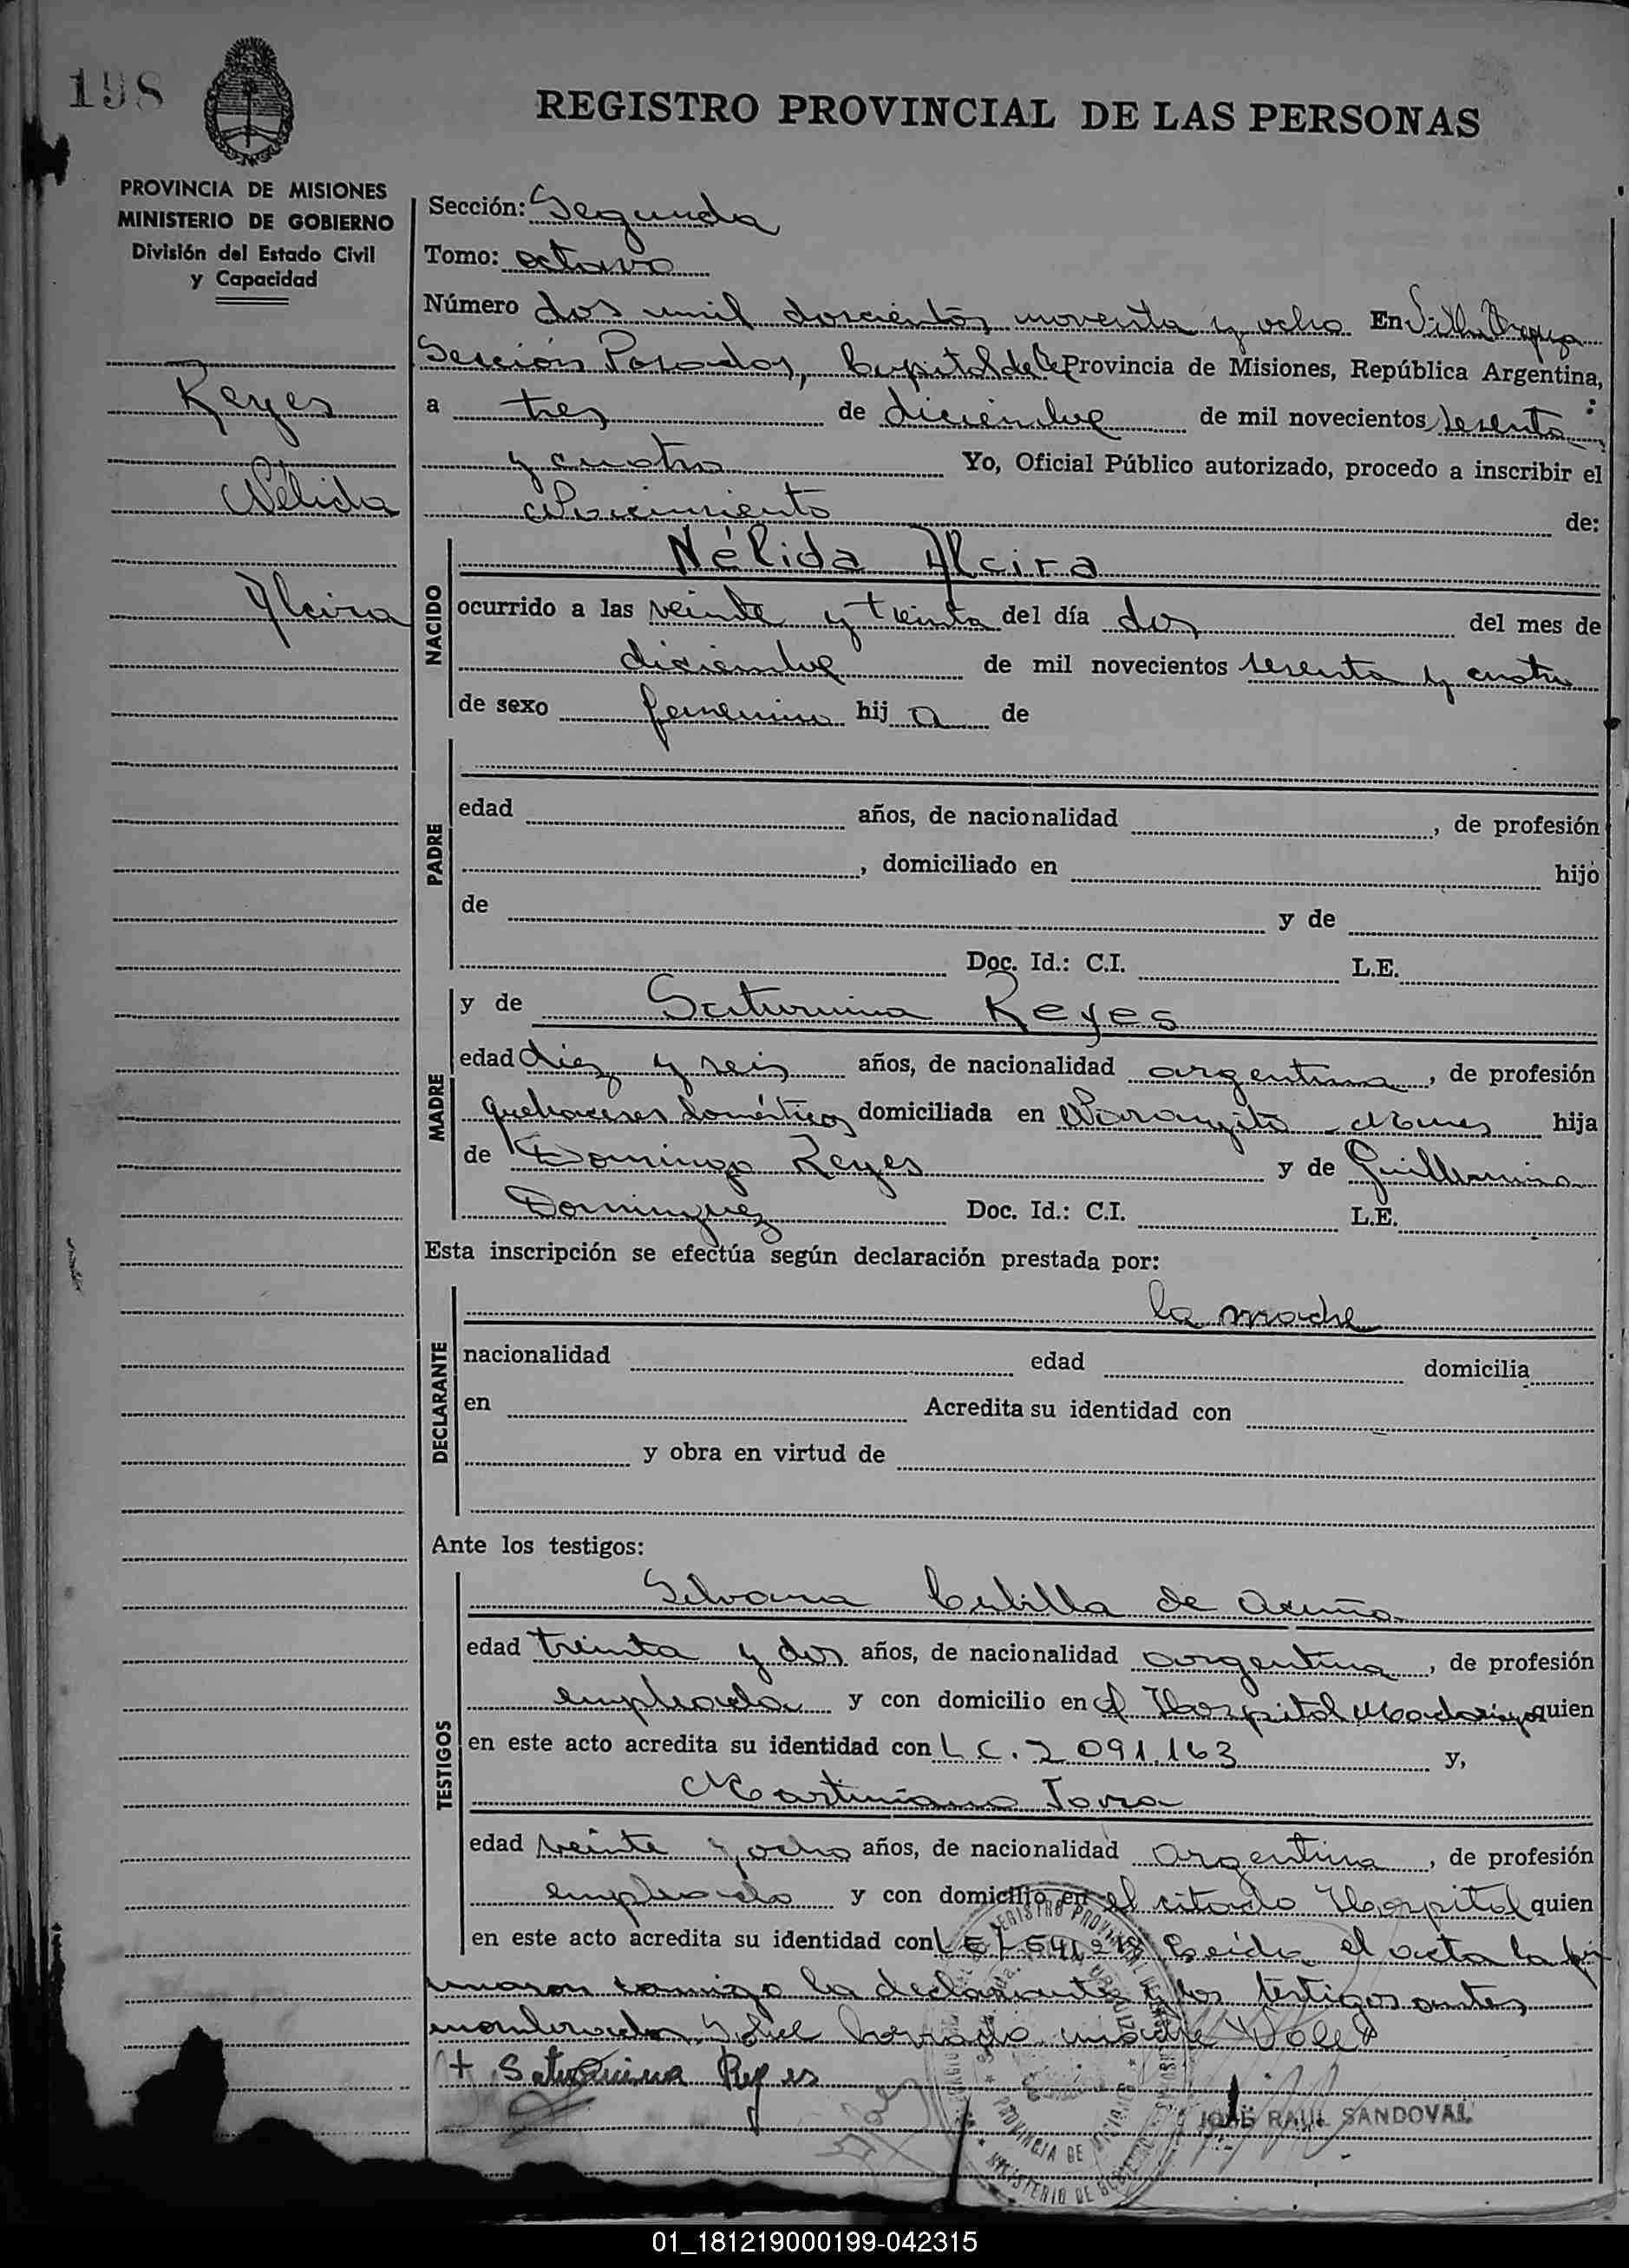 198
REGISTRO PROVINCIAL DE LAS PERSONAS
PROVINCIA DE MISIONES
MINISTERIO DE GOBIERNO
División del Estado Civil
y Capacidad
Reyes
Nélida
Alcira
Sección: Segunda
Tomo: octavo
Número dos mil doscientos noventa y ocho En Villa Urquiza
Sección Posadas, Capital de la Provincia de Misiones, República Argentina,
a tres de diciembre de mil novecientos sesenta
y cuatro Yo, Oficial Público autorizado, procedo a inscribir el
Nacimiento de:
NACIDO
Nélida Alcira
ocurrido a las veinte y treinta del día dos del mes de
diciembre de mil novecientos sesenta y cuatro
de sexo femenino hij a de
PADRE
edad años, de nacionalidad , de profesión
, domiciliado en hijo
de y de
Doc. Id.: C.I. L.E.
MADRE
y de Saturnina Reyes
edad diez y seis años, de nacionalidad argentina, de profesión
quehaceres domésticos domiciliada en Naranjito hija
de Domingo Reyes y de Guillermina
Dominguez Doc. Id.: C.I. L.E.
Esta inscripción se efectúa según declaración prestada por:
DECLARANTE
la madre
nacionalidad edad domicilia
en Acredita su identidad con
y obra en virtud de
Ante los testigos:
TESTIGOS
Silvana de Acuña
edad treinta y dos años, de nacionalidad argentina, de profesión
empleada y con domicilio en el Hospital Madariaga quien
en este acto acredita su identidad con L C. 2 091.163 y,
Martiniano
edad veinte y ocho años, de nacionalidad argentina, de profesión
empleado y con domicilio en el citado Hospital quien
en este acto acredita su identidad con L E Leída el acta la fir
maron conmigo la declarante y los testigos antes
nombrados. S/del borrado: madre Vale
+ Saturnina Reyes
JOSÉ RAUL SANDOVAL
REGISTRO PROVINCIAL
PROVINCIA DE MISIONES
MINISTERIO DE GOBIERNO
01_181219000199-042315